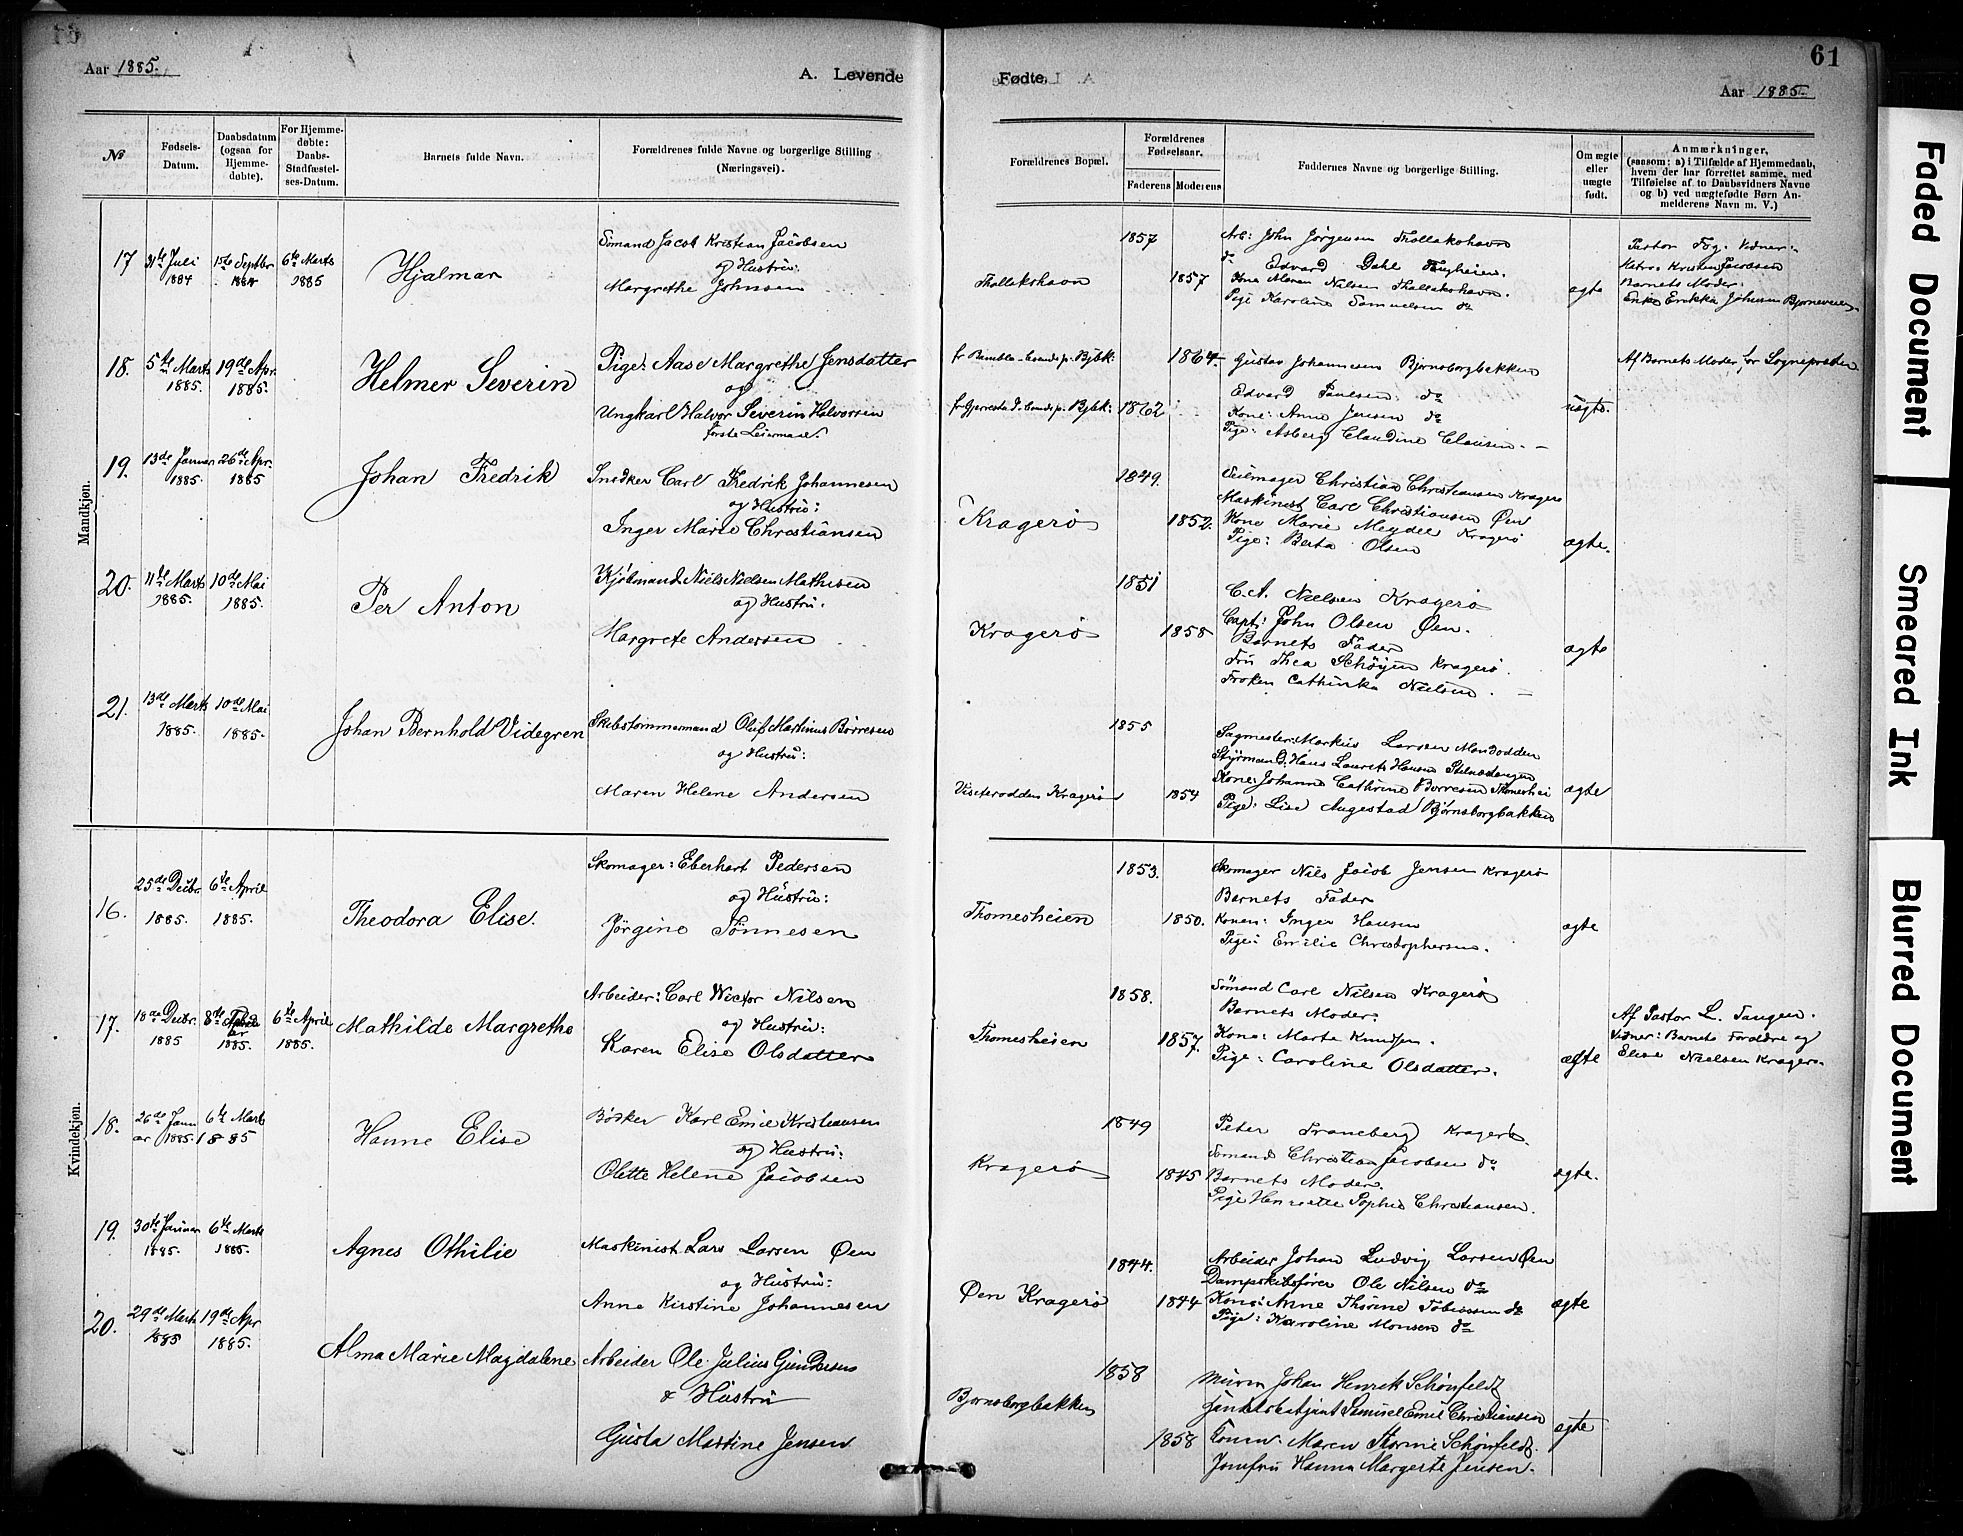 Aar 1885.
A. Levende
№
Fødsels-Datum.
Daabsdatum (ogsaa for Hjemmedøbte).
For Hjemmedøbte: Daabs-Stadfæstelses-Datum.
Barnets fulde Navn.
Forældrenes fulde Navne og borgerlige Stilling (Næringsvei).
Fødte.
61
Aar 1885.
Forældrenes Bopæl.
Forældrenes Fødselsaar.
Faderens
Moderens
Faddernes Navne og borgerlige Stilling.
Om ægte eller uægte født.
Anmærkninger,
(saasom: a) i Tilfælde af Hjemmedaab, hvem der har forrettet samme, med Tilføielse af to Daabsvidners Navne og b) ved uægtefødte Børn Anmelderens Navn m. V.)
Mandkjøn.
17
31te Juli 1884
6te Marts 1885
Hjalmar
Sømand Jacob Kristian Jacobsen
og Hustru:
Margrethe Johnsen
Thallakshavn
1857
1857
Arb: John Jørgensen Thallakshavn
do Edvard Dahl
Kone Maren Nielsen Thallakshavn.
Pige Karoline Samuelsen do
ægte
Barnets Moder.
18.
5te Marts 1885.
19de Apr. 1885.
Helmer Severin
Pige: Aase Margrethe Jensdatter
og
Ungkarl Halvor Severin Halvorsen
første Leiermaal.
1864
1862
Gustav Johannesen Bjørnsborgbakken
Edvard Paulsen do
Kone: Anne Jensen do
Pige: Asberg Claudine Clausen. —
uægte.
Af Barnets Moder for Sognepræsten
19.
13de Januar 1885.
26de Apr. 1885
Johan Fredrik
Snedker Carl Fredrik Johannesen
og Hustru:
Inger Marie Christiansen
Kragerø
1849.
1852.
Seilmager Christian Christiansen Kragerø
Maskinist Carl Christiansen Øen
Kone Marie Meydell Kragerø
Pige: Berta Olsen
ægte.
20.
11te Marts 1885.
10de Mai 1885.
Per Anton
Kjøbmand Niels Nielsen Mathisen
og Hustru.
Margrete Andersen
Kragerø
1851
1858
C. A. Nielsen Kragerø
Capt: John Olsen Øen.
Barnets Fader
Fru Thea Schøyen Kragerø.
Frøken Cathinka Nielsen. —
ægte
21.
13de Marts 1885.
10de Mai 1885.
Johan Bernhold Videgren
Skibstømmermand Oluf Martinus Børresen
og Hustru:
Maren Helene Andersen
Kragerø
1855
1854
Sagmester: Markus Larsen
Styrmand: Hans Laurets Hansen
Kone: Johanne Cathrine Børresen Thomeshei
Pige: Lise Augestad Bjørnsborgbakken
ægte
Kvindekjøn.
16.
25de Decbr. 1885.
6te April 1885.
Theodora Elise.
Skomager: Eberhart Pedersen
og Hustru:
Jørgine Tønnesen
Thomesheien
1853.
1850.
Skomager Nils Jacob Jensen Kragerø
Barnets Fader
Konen: Inger Hansen
Pige: Emilie Christophersen.
ægte
17.
18de Decbr. 1885
1885.
6te April 1885.
Mathilde Margrethe
Arbeider: Carl Victor Nilsen
og Hustru:
Karen Elise Olsdatter
Thomesheien
1858.
1857.
Sømand Carl Nilsen Kragerø
Barnets Moder.
Kone: Marta Knudsen.
Pige: Caroline Olsdatter.
ægte
Af Pastor L. Tangen.
Vidner: Barnets Forældre og
Elise Nielsen Kragerø.
18.
26de Januar 1885.
6te Marts 1885
Hanne Elise
Bødker Karl Emil Kristiansen
og Hustru:
Olette Helene Jacobsen
Kragerø
1849
1845
Peter Traneberg Kragerø.
Sømand Christian Jacobsen do
Barnets Moder.
Pige Henriette Sophie Christiansen.
ægte.
19.
30te Januar 1885.
6te Marts 1885.
Agnes Othilie
Maskinist Lars Larsen Øen
og Hustru:
Anne Kirstine Johannesen
Øen Kragerø
1844.
1844
Arbeider Johan Ludvig Larsen Øen
Dampskibsfører Ole Nilsen do
Kone: Anne Thorine Tobiassen do
Pige: Karoline Monsen do
ægte
20.
29de Marts 1885
19de Apr 1885.
Alma Marie Magdalene
Arbeider Ole Julius Gundersen
& Hustru
Gusta Martine Jensen
Bjørnsborgbakken
1858
1858
Murer Johan Henrik Schønfeldt
Samuel Emil Christiansen
Konen Maren Thorine Schønfeldt.
Jomfru Hanna Margerte Jensen.
ægte
Faded Document
Smeared Ink
Blurred Document